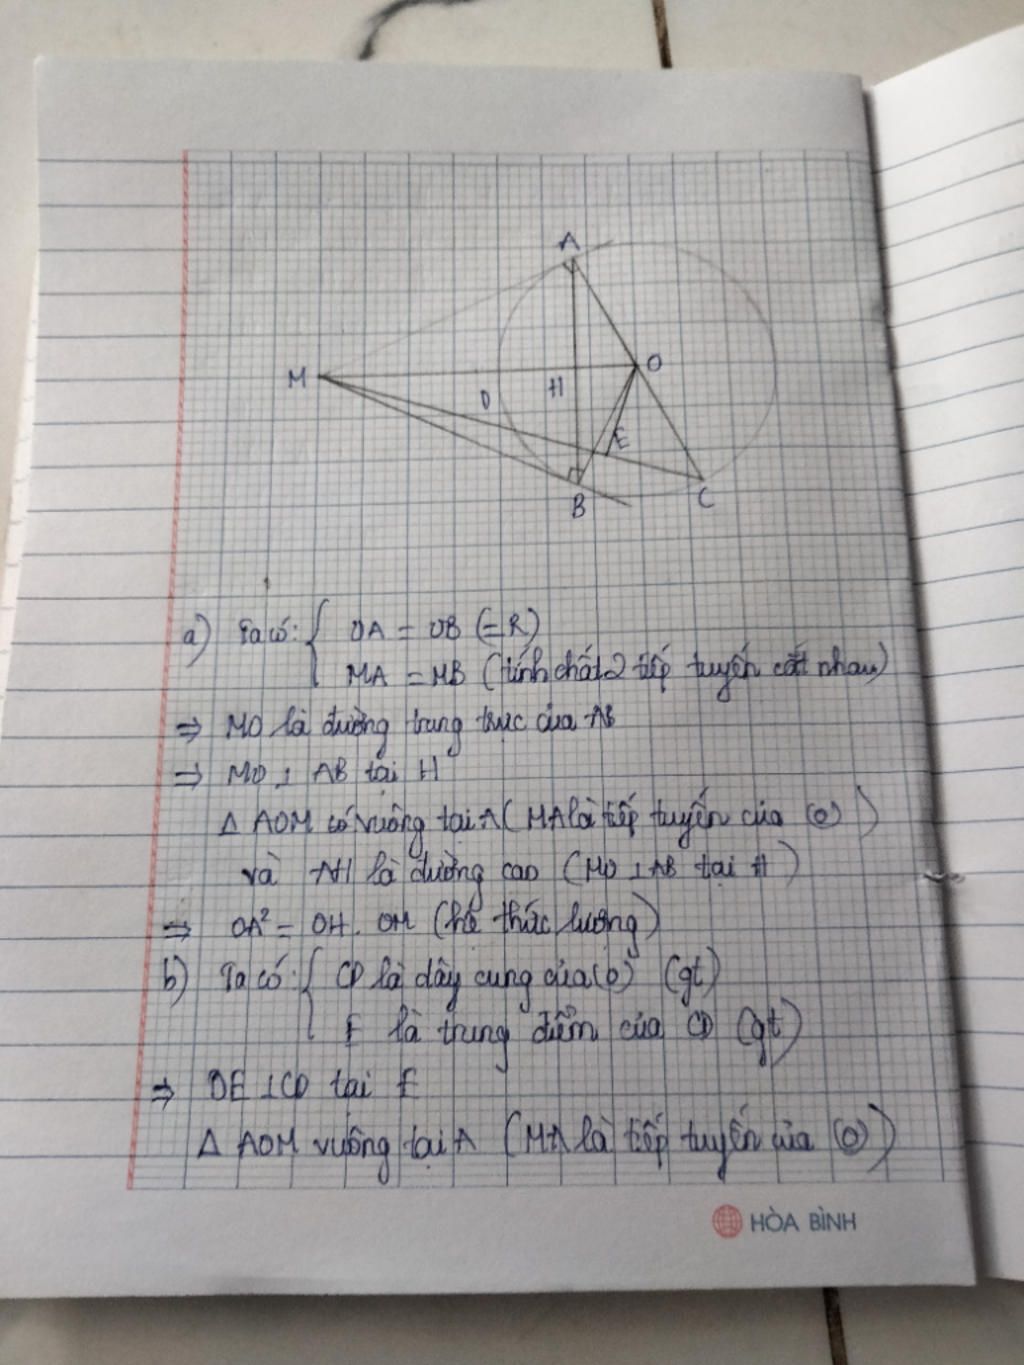 A
M
O
D
H
E
B
C
a) Ta có: { OA = OB (=R)
MA = MB (tính chất 2 tiếp tuyến cắt nhau)
⇒ MO là đường trung trực của AB
⇒ MO ⊥ AB tại H
Δ AOM có vuông tại A (MA là tiếp tuyến của (O))
và AH là đường cao (MO ⊥ AB tại H)
⇒ OA² = OH . OM (hệ thức lượng)
b) Ta có: { CD là dây cung của (O) (gt)
E là trung điểm của CD (gt)
⇒ OE ⊥ CD tại E
Δ AOM vuông tại A (MA là tiếp tuyến của (O))
HÒA BÌNH